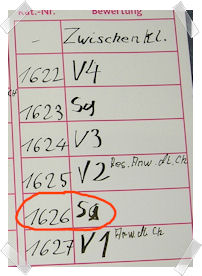 Kat.-Nr. Bewertung
- Zwischenkl.
1622 V4
1623 Sg
1624 V3
1625 V2 Res. Anw. dt. Ch
1626 Sg
1627 V1 Anw. dt. Ch